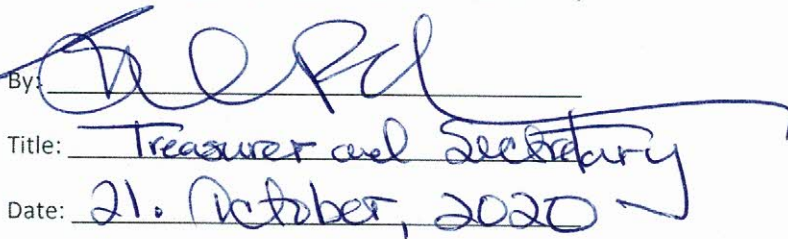 By:
Title: Treasurer and Secretary
Date: 21. October, 2020